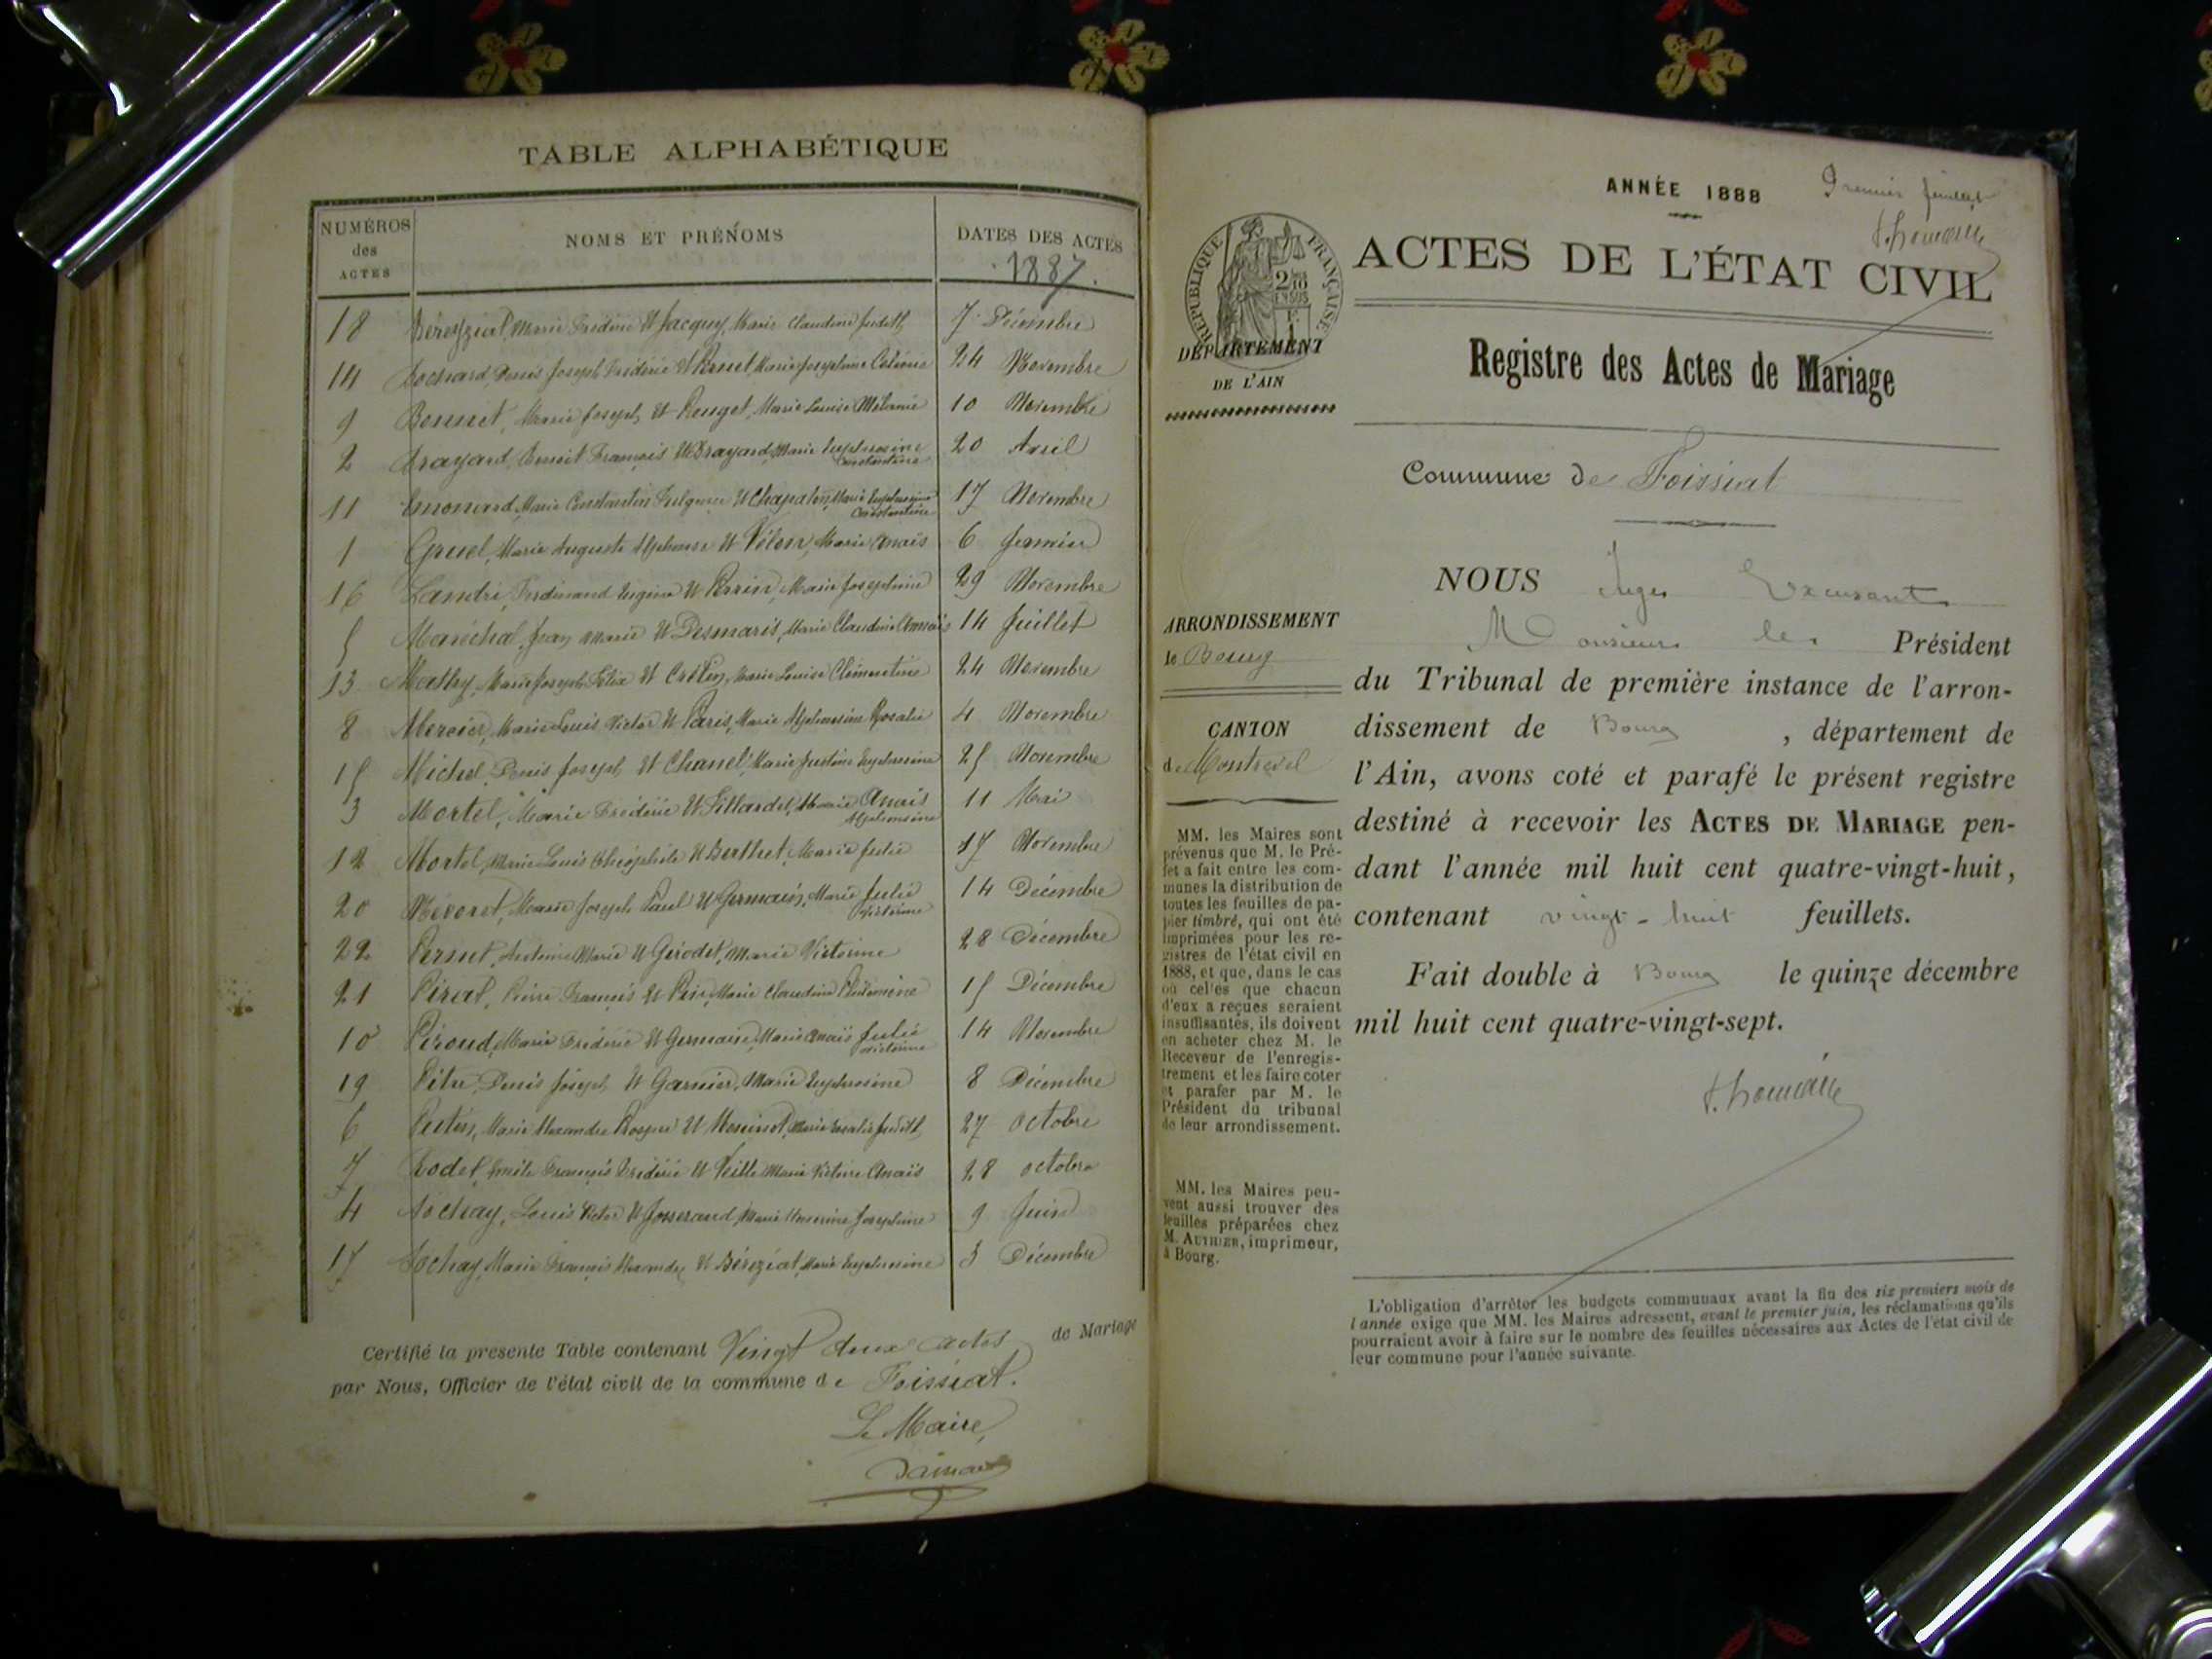 TABLE ALPHABÉTIQUE
NUMÉROS des ACTES
NOMS ET PRÉNOMS
DATES DES ACTES
1887.
18 Béreyziat, Marie Frédéric et Jacquy, Marie Claudine Judith 7 Décembre
14 Bochard, Denis Joseph Frédéric et Pernet, Marie Joséphine 24 Novembre
9 Bonnet, Marie Joseph et Rouget, Marie Louise Mélanie 10 Novembre
2 Brayard, Benoit François et Brayard, Marie Euphrosine Constantine 20 Avril
11 Emonard, Marie Constantin Fulgence et Chapaton, Marie Euphrosine Constantine 17 Novembre
1 Gruel, Marie Auguste Alphonse et Vélon, Marie Anaïs 6 Janvier
16 Landri, Ferdinand Eugène et Perrin, Marie Joséphine 29 Novembre
5 Maréchal, Jean Marie et Desmaris, Marie Claudine Anaïs 14 Juillet
13 Mathy, Marie Joseph Félix et Crétin, Marie Louise Clémentine 24 Novembre
8 Mercier, Marie Louis Victor et Paris, Marie Alphonsine Rosalie 4 Novembre
15 Michel, Denis Joseph et Chanel, Marie Justine Euphrosine 25 Novembre
3 Mortel, Marie Frédéric et Sillardet, Marie Anaïs Alphonsine 11 Mai
12 Mortel, Marie Louis Théophile et Berthet, Marie Julie 17 Novembre
20 Névoret, Marie Joseph Paul et Germain, Marie Julie Victorine 14 Décembre
22 Pernet, Antoine Marie et Girodet, Marie Victorine 28 Décembre
21 Pirat, Pierre François et Marie Claudine Philomène 15 Décembre
10 Piroud, Marie Frédéric et Germain, Marie Anaïs Julie Victorine 14 Novembre
19 Pitre, Denis Joseph et Garnier, Marie Euphrosine 8 Décembre
6 Marie Alexandre Prosper et Marie Rosalie Judith 27 Octobre
7 Rodet, Emile François Frédéric et Veille Marie Victoire Anaïs 28 octobre
4 Sochay, Louis Victor et Josserand, Marie Joséphine 9 Juin
17 Sochay, Marie François Alexandre et Béréziat, Marie Euphrosine 3 Décembre
Certifié la présente Table contenant Vingt deux actes de Mariage
par Nous, Officier de l'état civil de la commune de Foissiat.
Le Maire,
ANNÉE 1888
Premier feuillet
ACTES DE L'ÉTAT CIVIL
RÉPUBLIQUE FRANÇAISE
DÉPARTEMENT
DE L'AIN
Registre des Actes de Mariage
Commune de Foissiat
NOUS Juge
Monsieur le Président
du Tribunal de première instance de l'arron-
dissement de Bourg , département de
l'Ain, avons coté et parafé le présent registre
destiné à recevoir les ACTES DE MARIAGE pen-
dant l'année mil huit cent quatre-vingt-huit,
contenant vingt-huit feuillets.
Fait double à Bourg le quinze décembre
mil huit cent quatre-vingt-sept.
ARRONDISSEMENT
de Bourg
CANTON
de Montrevel
MM. les Maires sont
prévenus que M. le Pré-
fet a fait entre les com-
munes la distribution de
toutes les feuilles de pa-
pier timbré, qui ont été
imprimées pour les re-
gistres de l'état civil en
1888, et que, dans le cas
où celles que chacun
d'eux a reçues seraient
insuffisantes, ils doivent
en acheter chez M. le
Receveur de l'enregis-
trement et les faire coter
et parafer par M. le
Président du tribunal
de leur arrondissement.
MM. les Maires peu-
vent aussi trouver des
feuilles préparées chez
M. AUTHIER, imprimeur,
à Bourg.
L'obligation d'arrêter les budgets communaux avant la fin des six premiers mois de
l'année exige que MM. les Maires adressent, avant le premier juin, les réclamations qu'ils
pourraient avoir à faire sur le nombre des feuilles nécessaires aux Actes de l'état civil de
leur commune pour l'année suivante.